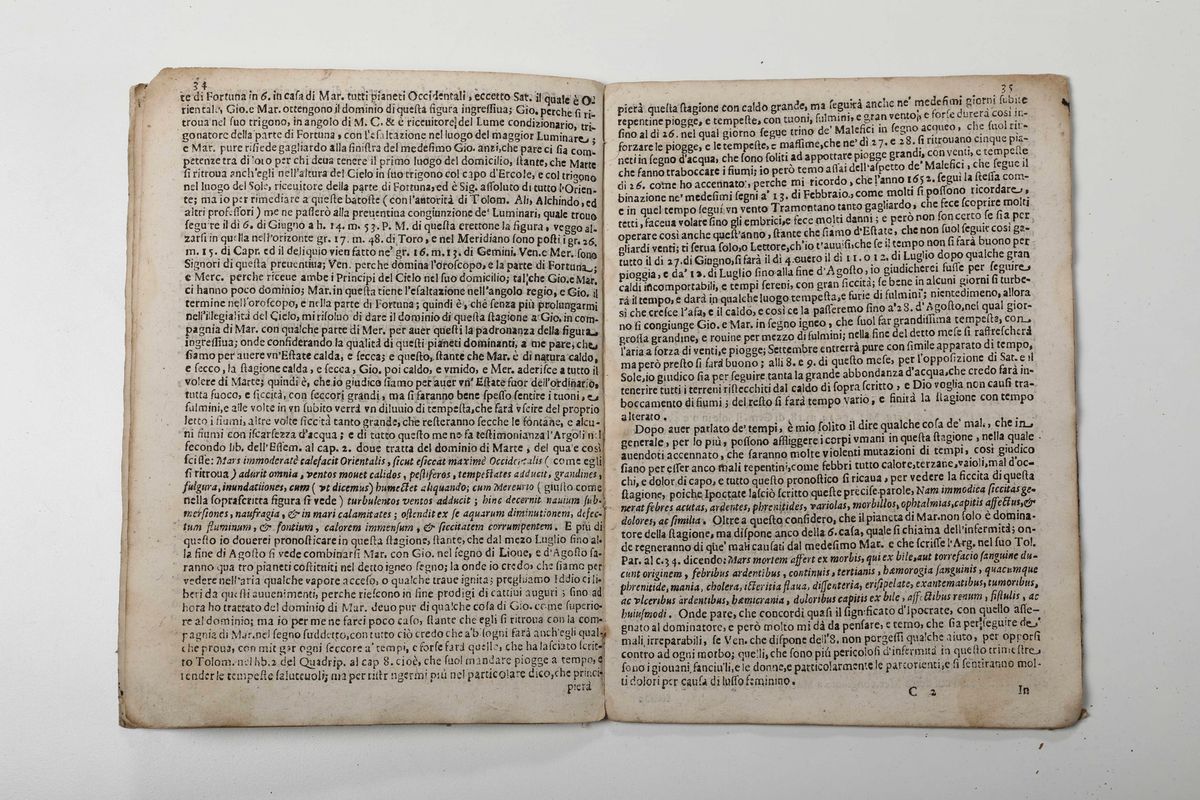 34
te di Fortuna in 6. in casa di Mar. tutti pianeti Occidentali, eccetto Sat. il quale è O-
rientale, Gio. e Mar. ottengono il dominio di questa figura ingressiua; Gio. perche si ri-
troua nel suo trigono, in angolo di M. C. & è riceuitore del Lume condizionario, tri-
gonatore della parte di Fortuna, con l'esaltazione nel luogo del maggior Luminare;
e Mar. pure risiede gagliardo alla sinistra del medesimo Gio. anzi, che pare ci sia com-
petenze tra di loro per chi deua tenere il primo luogo del domicilio, stante, che Marte
si ritroua anch'egli nell'altura del Cielo in suo trigono col capo d'Ercole, e col trigono
nel luogo del Sole, riceuitore della parte di Fortuna, ed è Sig. assoluto di tutto l'Orien-
te; ma io per rimediare a queste batoste (con l'autorità di Tolom. Ali, Alchindo, ed
altri professori) me ne passerò alla preuentiua congiunzione de' Luminari, quale trouo
seguire il dì 6. di Giugno a h. 14. m. 53. P. M. di questa erettone la figura, veggo al-
zarsi in quella nell'orizonte gr. 17. m. 48. di Toro, e nel Meridiano sono posti i gr. 26.
m. 15. di Capr. ed il deliquio vien fatto ne' gr. 16. m. 13. di Gemini. Ven. e Mer. sono
Signori di questa preuentiua; Ven. perche domina l'oroscopo, e la parte di Fortuna;
e Merc. perche riceue ambe i Principi del Cielo nel suo domicilio; tal, che Gio. e Mar.
ci hanno poco dominio; Mar. in questa tiene l'esaltazione nell'angolo regio, e Gio. il
termine nell'oroscopo, e nella parte di Fortuna; quindi è, che senza più prolungarmi
nell'illegialità del Cielo, mi risoluo di dare il dominio di questa stagione a Gio. in com-
pagnia di Mar. con qualche parte di Mer. per auer questi la padronanza della figura
ingressiua; onde considerando la qualità di questi pianeti dominanti, a me pare, che
siamo per auere vn'Estate calda, e secca; e questo, stante che Mar. è di natura caldo,
e secco, la stagione calda, e secca, Gio. poi caldo, e vmido, e Mer. aderisce a tutto il
volere di Marte; quindi è, che io giudico siamo per auer vn' Estate fuor dell'ordinario,
tutta fuoco, e siccità, con seccori grandi, ma si faranno bene spesso sentire i tuoni, e
fulmini, e alle volte in vn subito verrà vn diluuio di tempesta, che farà vscire del proprio
letto i fiumi, altre volte siccità tanto grande, che resteranno secche le fontane, e alcu-
ni fiumi con iscarsezza d'acqua; e di tutto questo me ne fa testimonianza l'Argoli nel
secondo lib. dell'Effem. al cap. 2. doue tratta del dominio di Marte, del qua e così
scisse: Mars immoderatè calefacit Orientalis, sicut esiccat maximè Occidentalis (come egli
si ritroua) adurit omnia, ventos mouet calidos, pestiferos, tempestates adducit, grandines,
fulgura, inundationes, cum (vt dicemus) humectet aliquando; cum Mercurio (giusto come
nella soprascritta figura si vede) turbulentos ventos adducit; hinc decernit nauium sub-
mersiones, naufragia, & in mari calamitates; ostendit ex se aquarum diminutionem, defec-
tum fluminum, & fontium, calorem immensum, & siccitatem corrumpentem. E più di
questo io douerei pronosticare in questa stagione, stante, che dal mezo Luglio fino al-
la fine di Agosto si vede combinarsi Mar. con Gio. nel segno di Lione, e d'Agosto sa-
ranno qua tro pianeti costituiti nel detto igneo segno; la onde io credo, che siamo per
vedere nell'aria qualche vapore acceso, o qualche traue ignita; pregluamo Iddio ci li-
beri da questi auuenimenti, perche riescono in fine prodigi di cattiui auguri; fino ad
hora ho trattato del dominio di Mar. deuo pur di qualche cosa di Gio. come superio-
re al dominio; ma io per me ne farei poco caso, stante che egli si ritroua con la com-
pagnia di Mar. nel segno suddetto, con tutto ciò credo che a'b sogni farà anch'egli qual-
che proua, con mit gar ogni seccore a' tempi, e forse farà quello, che ha lasciato scrit-
to Tolom. nel lib. 2 del Quadrip. al cap 8. cioè, che suol mandare piogge a tempo, e
render le tempeste saluteuoli; ma per ristr ngermi più nel particolare dico, che princi-
pierà
35
pierà questa stagione con caldo grande, ma seguirà anche ne' medesimi giorni subite
repentine piogge, e tempeste, con tuoni, fulmini, e gran vento, e forse durerà così in-
fino al dì 26. nel qual giorno segue trino de' Malefici in segno acqueo, che suol rin-
forzare le piogge, e le tempeste, e massime, che ne' dì 27. e 28. si ritrouano cinque pia-
neti in segno d'acqua, che sono soliti ad apportare piogge grandi, con venti, e tempeste
che fanno traboccare i fiumi; io però temo assai dell'aspetto de' Malefici, che segue il
dì 26. come ho accennato, perche mi ricordo, che l'anno 1652. seguì la stessa com-
binazione ne' medesimi segni a' 13. di Febbraio, come molti si possono ricordare,
e in quel tempo seguì vn vento Tramontano tanto gagliardo, che fece scoprire molti
tetti, faceua volare sino gli embrici, e fece molti danni; e però non son certo se sia per
operare così anche quest'anno, stante che siamo d'Estate, che non suol seguir così ga-
gliardi venti; ti serua solo, o Lettore, ch'io t'auuisi, che se il tempo non si farà buono per
tutto il dì 27. di Giugno, si farà il dì 4. euero il dì 11. o 12. di Luglio dopo qualche gran
pioggia, e da' 12. di Luglio fino alla fine d'Agosto, io giudicherei fusse per seguire
caldi incomportabili, e tempi sereni, con gran siccità; se bene in alcuni giorni si turbe-
rà il tempo, e darà in qualche luogo tempesta, e furie di fulmini; nientedimeno, allora
sì che cresce l'afa, e il caldo, e così ce la passeremo fino a' 28. d'Agosto, nel qual gior-
no si congiunge Gio. e Mar. in segno igneo, che suol far grandissima tempesta, con
grossa grandine, e rouine per mezzo di fulmini; nella fine del detto mese si rasfrescherà
l'aria a forza di venti, e piogge; Settembre entrerrà pure con simile apparato di tempo,
ma però presto si farà buono; alli 8. e 9. di questo mese, per l'opposizione di Sat. e il
Sole, io giudico sia per seguire tanta la grande abbondanza d'acqua, che credo farà in-
tenerire tutti i terreni risecchiti dal caldo di sopra scritto, e Dio voglia non causi tra-
boccamento di fiumi; del resto si farà tempo vario, e finità la stagione con tempo
alterato.
Dopo auer parlato de' tempi, è mio solito il dire qualche cosa de' mal, che in
generale, per lo più, possono affliggere i corpi vmani in questa stagione, nella quale
auendoti accennato, che saranno molte violenti mutazioni di tempi, così giudico
siano per esser anco mali repentini, come febbri tutto calore, terzane, vaioli, mal d'oc-
chi, e dolor di capo, e tutto questo pronostico si ricaua, per vedere la siccita di questa
stagione, poiche Ipocrate lasciò scritto queste precise parole, Nam immodica siccitas ge-
nerat febres acutas, ardentes, phrenitides, variolas, morbillos, ophtalmias, capitis affectus, &
dolores, ac similia. Oltre a questo considero, che il pianeta di Mar. non solo è domina-
tore della stagione, ma dispone anco della 6. casa, quale si chiama dell'infermità; on-
de regneranno di que' mali causati dal medesimo Mar. e che scrisse l'Arg. nel suo Tol.
Par. al c. 34. dicendo: Mars mortem affert ex morbis, qui ex bile, aut torrefacto sanguine du-
cunt originem, febribus ardentibus, continuis, tertianis, hæmorogia sanguinis, quacumque
phrenitide, mania, cholera, icteritia flaua, dissenteria, erisipelate, exantematibus, tumoribus,
ac vlceribus ardentibus, hæmicrania, doloribus capitis ex bile, affectibus renum, fistulis, ac
huiusmodi. Onde pare, che concordi quasi il significato d'Ipocrate, con quello asse-
gnato al dominatore, e però molto mi dà da pensare, e temo, che sia per seguire de'
mali irreparabili, se Ven. che dispone dell'8. non porgessi qualche aiuto, per opporsi
contro ad ogni morbo; quelli, che sono più pericolosi d'infermità in questo trimestre
sono i giouani, fanciulli, e le donne, e particolarmente le partorienti, e si sentiranno mol-
ti dolori per causa di lusso feminino.
C 2
In